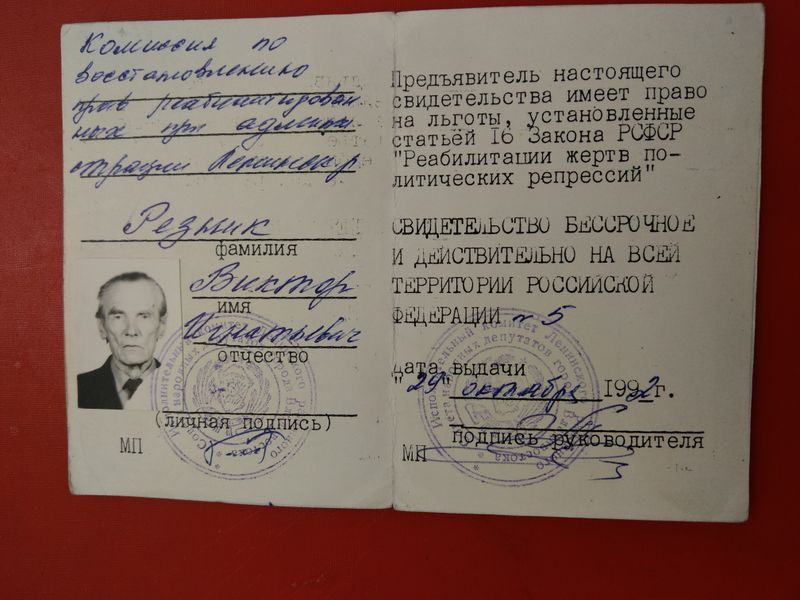 Комиссия по
восстановлению
прав реабилитирован
ных при админи
страции Ленинск. р
Резник
фамилия
Виктор
имя
Игнатьевич
отчество
(личная подпись)
МП
Предъявитель настоящего
свидетельства имеет право
на льготы, установленные
статьёй 16 Закона РСФСР
"Реабилитации жертв по-
литических репрессий"
СВИДЕТЕЛЬСТВО БЕССРОЧНОЕ
И ДЕЙСТВИТЕЛЬНО НА ВСЕЙ
ТЕРРИТОРИИ РОССИЙСКОЙ
ФЕДЕРАЦИИ № 5
дата выдачи
"29" октября 1992г.
подпись руководителя
МП
Исполнительный комитет Ленинск
народных депутатов гор